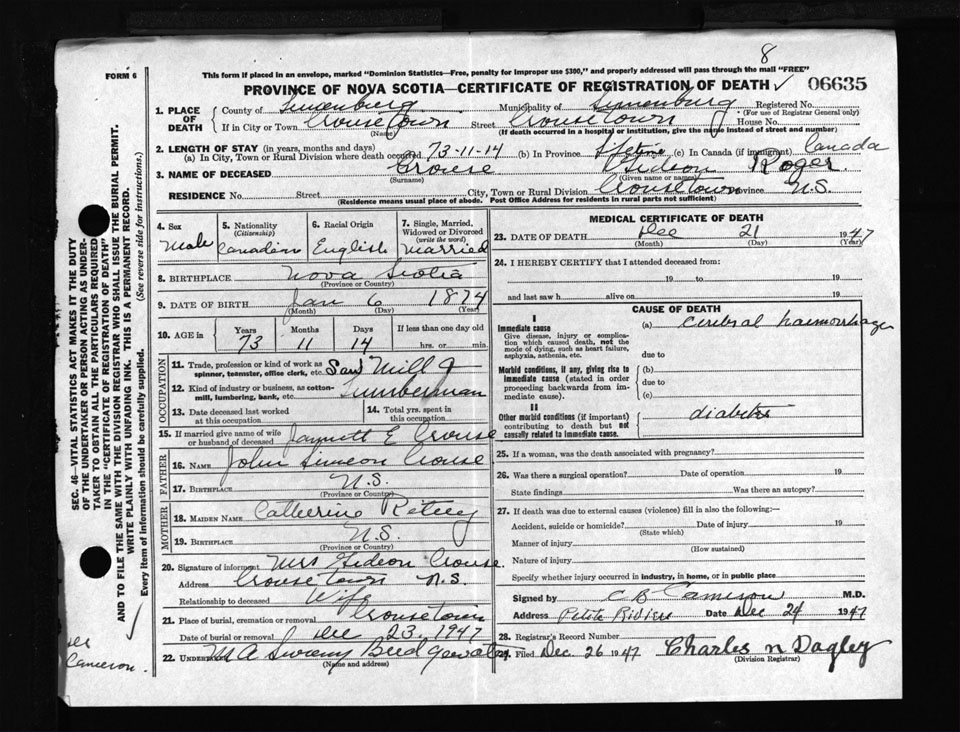 8
FORM 6
This form if placed in an envelope, marked "Dominion Statistics—Free, penalty for improper use $300," and properly addressed will pass through the mail "FREE"
PROVINCE OF NOVA SCOTIA—CERTIFICATE OF REGISTRATION OF DEATH ✓ 06635
1. PLACE OF DEATH
County of Lunenburg Municipality of Lunenburg Registered No.
(For use of Registrar General only)
If in City or Town Crousetown Street Crousetown House No.
(Name) (If death occurred in a hospital or institution, give the name instead of street and number)
2. LENGTH OF STAY (in years, months and days)
(a) In City, Town or Rural Division where death occurred 73-11-14 (b) In Province lifetime (c) In Canada (if immigrant) Canada
3. NAME OF DECEASED Crouse Gideon Roger.
(Surname) (Given name or names)
RESIDENCE No. Street City, Town or Rural Division Crousetown Province N.S.
(Residence means usual place of abode. Post Office Address for residents in rural parts not sufficient)
4. Sex
Male
5. Nationality (Citizenship)
Canadian
6. Racial Origin
English
7. Single, Married, Widowed or Divorced (write the word)
Married
8. BIRTHPLACE Nova Scotia
(Province or Country)
9. DATE OF BIRTH Jan 6 1874
(Month) (Day) (Year)
10. AGE in Years Months Days If less than one day old
73 11 14 hrs. or min.
OCCUPATION
11. Trade, profession or kind of work as spinner, teamster, office clerk, etc. Saw Mill &
12. Kind of industry or business, as cotton-mill, lumbering, bank, etc. Lumberman
13. Date deceased last worked at this occupation
14. Total yrs. spent in this occupation
15. If married give name of wife or husband of deceased E Crouse
FATHER
16. NAME John Simeon Crouse
17. BIRTHPLACE N.S.
(Province or Country)
MOTHER
18. MAIDEN NAME Catherine
19. BIRTHPLACE N.S.
(Province or Country)
20. Signature of informant Mrs Gideon Crouse.
Address Crousetown N.S.
Relationship to deceased Wife
21. Place of burial, cremation or removal Crousetown
Date of burial or removal Dec 23, 1947
22. UNDERTAKER M A
(Name and address)
MEDICAL CERTIFICATE OF DEATH
23. DATE OF DEATH Dec 21 1947
(Month) (Day) (Year)
24. I HEREBY CERTIFY that I attended deceased from:
19 to 19
and last saw h alive on 19
CAUSE OF DEATH
I
Immediate cause
Give disease, injury or complication which caused death, not the mode of dying, such as heart failure, asphyxia, asthenia, etc.
(a) cerebral haemorrhage
due to
Morbid conditions, if any, giving rise to immediate cause (stated in order proceeding backwards from immediate cause).
(b)
due to
(c)
II
Other morbid conditions (if important) contributing to death but not causally related to immediate cause.
diabetes
25. If a woman, was the death associated with pregnancy?
26. Was there a surgical operation? Date of operation 19
State findings Was there an autopsy?
27. If death was due to external causes (violence) fill in also the following:—
Accident, suicide or homicide? Date of injury 19
(State which)
Manner of injury
(How sustained)
Nature of injury
Specify whether injury occurred in industry, in home, or in public place
Signed by C B Cameron M.D.
Address Petite Riviere Date Dec 24 1947
28. Registrar's Record Number
29. Filed Dec 26 1947 Charles N Dagley
(Division Registrar)
SEC. 46—VITAL STATISTICS ACT MAKES IT THE DUTY
OF THE UNDERTAKER OR PERSON ACTING AS UNDER-
TAKER TO OBTAIN ALL THE PARTICULARS REQUIRED
IN THE "CERTIFICATE OF REGISTRATION OF DEATH"
AND TO FILE THE SAME WITH THE DIVISION REGISTRAR WHO SHALL ISSUE THE BURIAL PERMIT.
WRITE PLAINLY WITH UNFADING INK. THIS IS A PERMANENT RECORD.
Every item of information should be carefully supplied. (See reverse side for instructions.)
✓
Cameron.